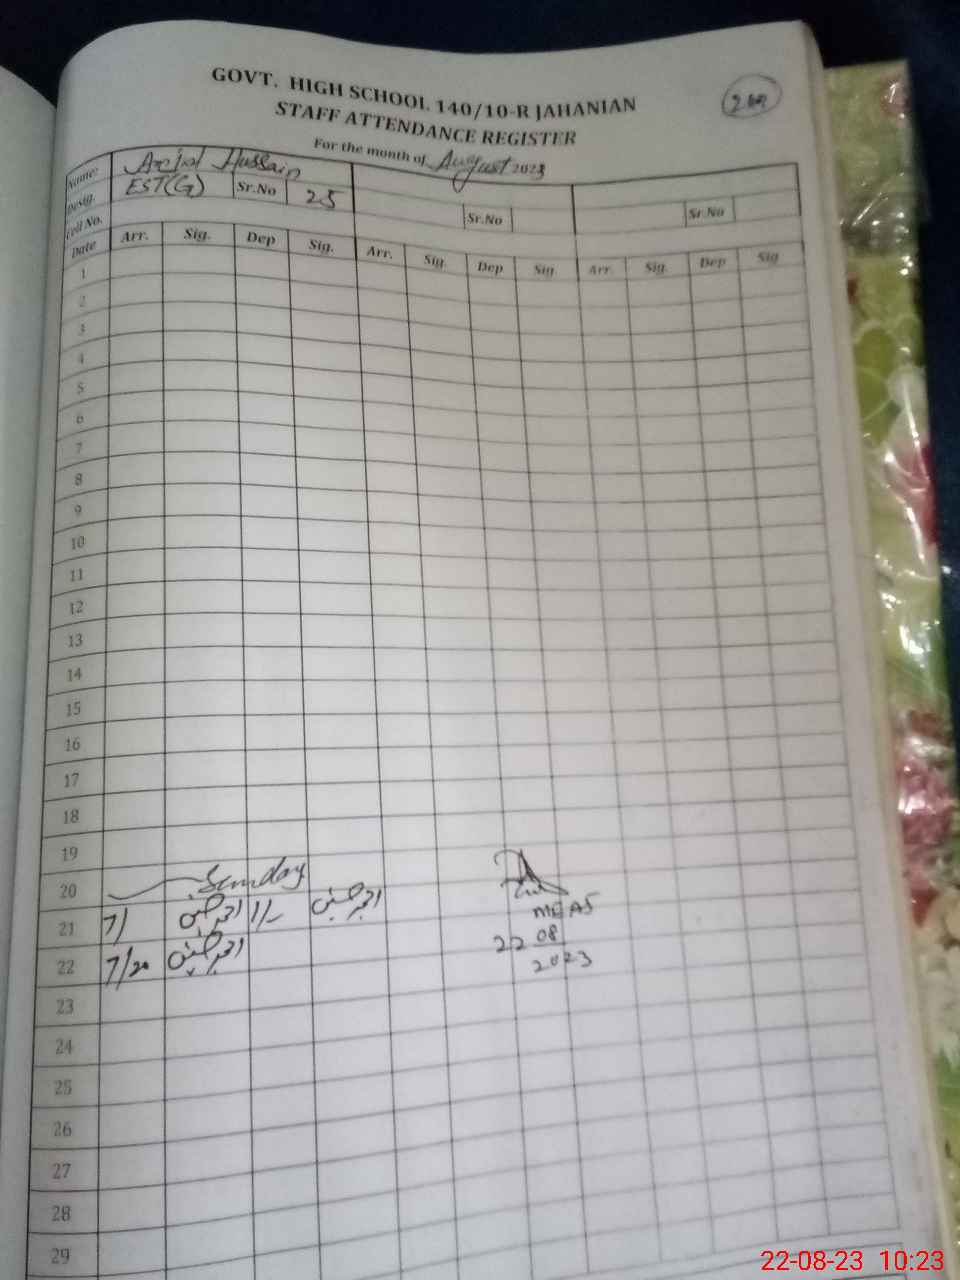 GOVT. HIGH SCHOOL 140/10-R JAHANIAN
STAFF ATTENDANCE REGISTER
For the month of August 2023
Name: Hussain
Desig. EST(G) Sr.No 25 Sr.No Sr.No
Cell No.
Date Arr. Sig. Dep Sig. Arr. Sig. Dep Sig Arr. Sig. Dep Sig
1
2
3
4
5
6
7
8
9
10
11
12
13
14
15
16
17
18
19
20 Sunday
21 7/ 1/-
MEAS
22 7/20
22 08
2023
23
24
25
26
27
28
29
22-08-23 10:23